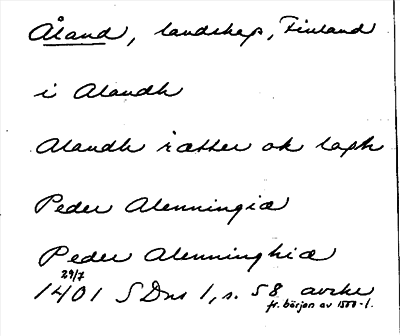 Åland, landskap, Finland
i Alandh
Alandh rætter ok laph
Peder Alenningiæ
Peder Alenninghiæ
29/7
1401 SDns 1, s. 58 avskr
fr. början av 1500-t.